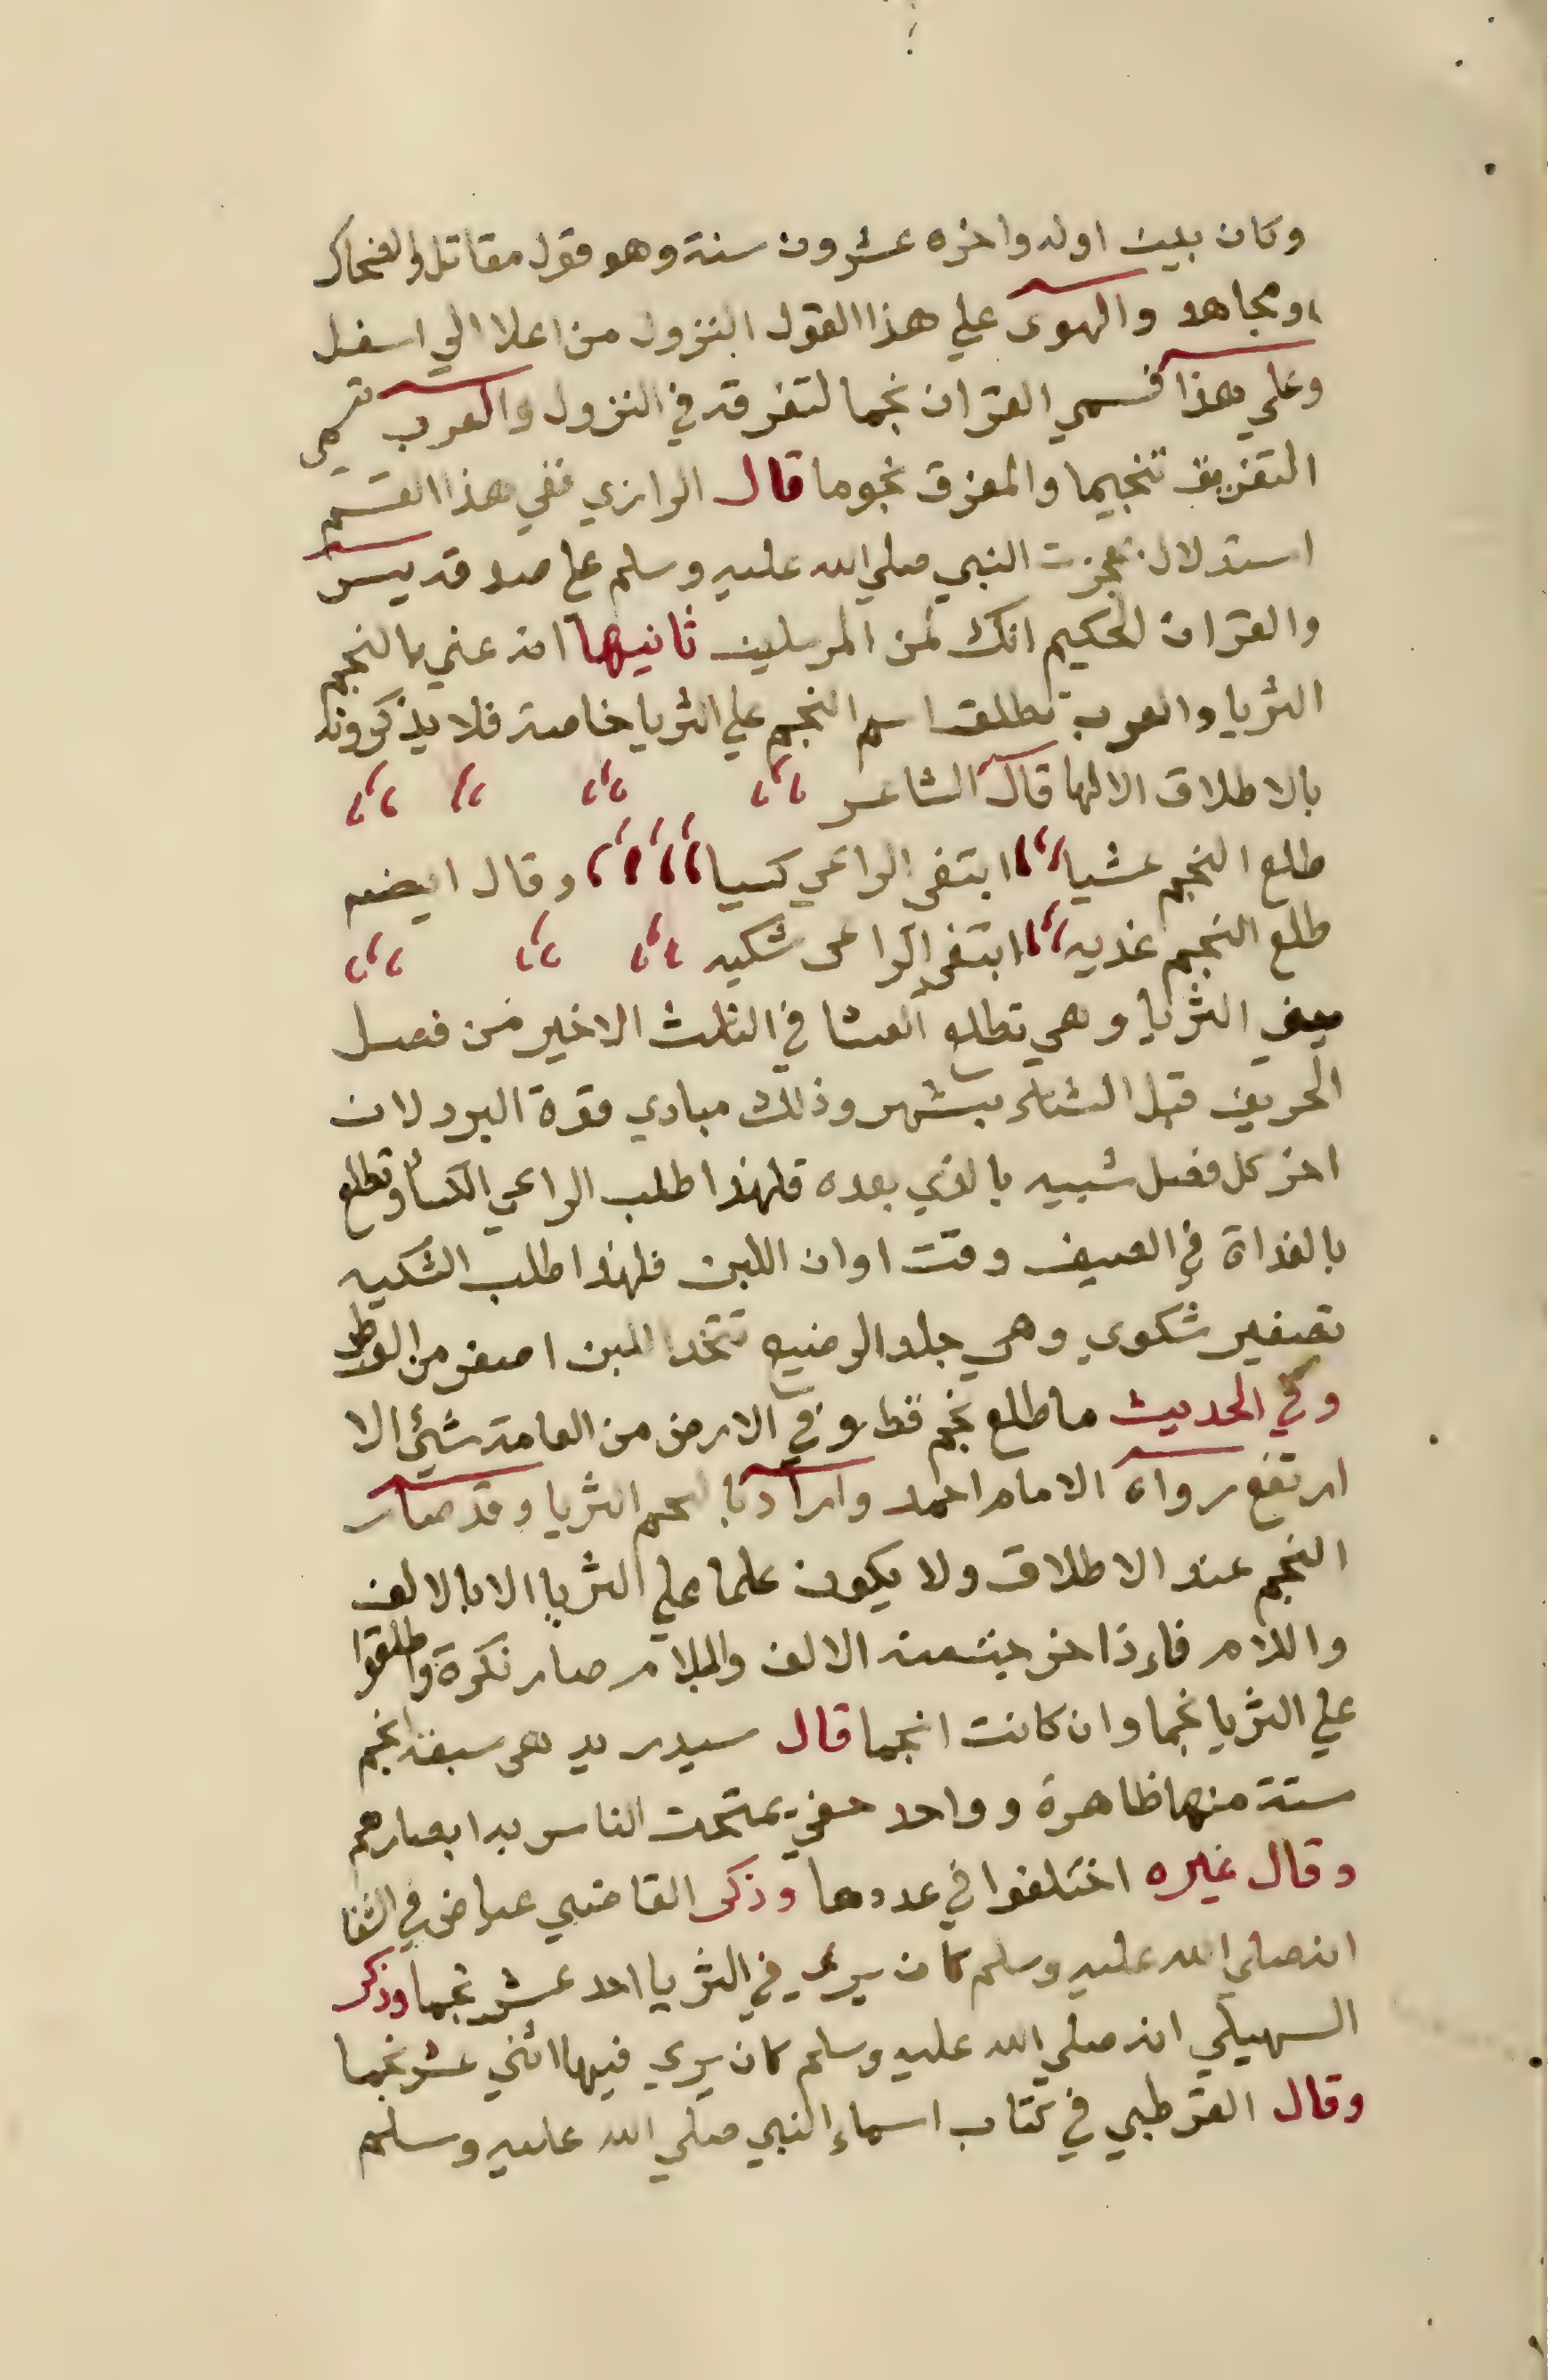 وكان بين اوله واخره عشرون سنة وهو قول مقاتل والضحاك
ومجاهد والهوى علي هذا القول النزول من اعلا الي اسفل
وعلي هذا فسمي القران نجما لتفرقه في النزول والعرب تسمي
التفريق تنجيما والمفرق نجوما قال الرازي ففي هذا القسم
استدلال بمعجزت النبي صلي الله عليه وسلم علي صدقه يس
والقران الحكيم انك لمن المرسلين ثانيها انه عني بالنجم
الثريا والعرب تطلق اسم النجم علي الثريا خاصة فلا يذكرونه
بالاطلاق الا لها قال الشاعر
طلع النجم عشيا ابتغى الراعي كسيا وقال ايضه
طلع النجم غديه ابتغى الراعى شكيه
يعني الثريا وهي تطلع العشا في الثلث الاخير من فصل
الخريف قبل الشتاء بشهر وذلك مبادي قوة البرد لان
اخر كل فصل شبيه بالذي بعده فلهذا طلب الراعي الكساء وتطلع
بالغداة في الصيف وقت اوان اللبن فلهذا طلب الشكيه
تصغير شكوي وهي جلد الرضيع تتخذ للبن اصغر من الوطب
وفي الحديث ما طلع نجم قط وفي الارض من العامة شئ الا
ارتفع رواه الامام احمد واراد بالنجم الثريا وقد صار
النجم عند الاطلاق ولا يكون علما علي الثريا الا بالالف
واللام فاءذا خرجت منه الالف واللام صار نكرة واطلقوا
علي الثريا نجما وان كانت انجما قال سيدريد هى سبعة انجم
ستة منها ظاهرة وواحد خفي يمتحن الناس به ابصارهم
وقال غيره اختلفوا في عددها وذكر القاضي عياض في الشفا
انه صلي الله عليه وسلم كان يرى في الثريا احد عشر نجما وذكر
السهيلي انه صلي الله عليه وسلم كان يري فيها اثني عشر نجما
وقال القرطبي في كتاب اسماء النبي صلي الله عليه وسلم